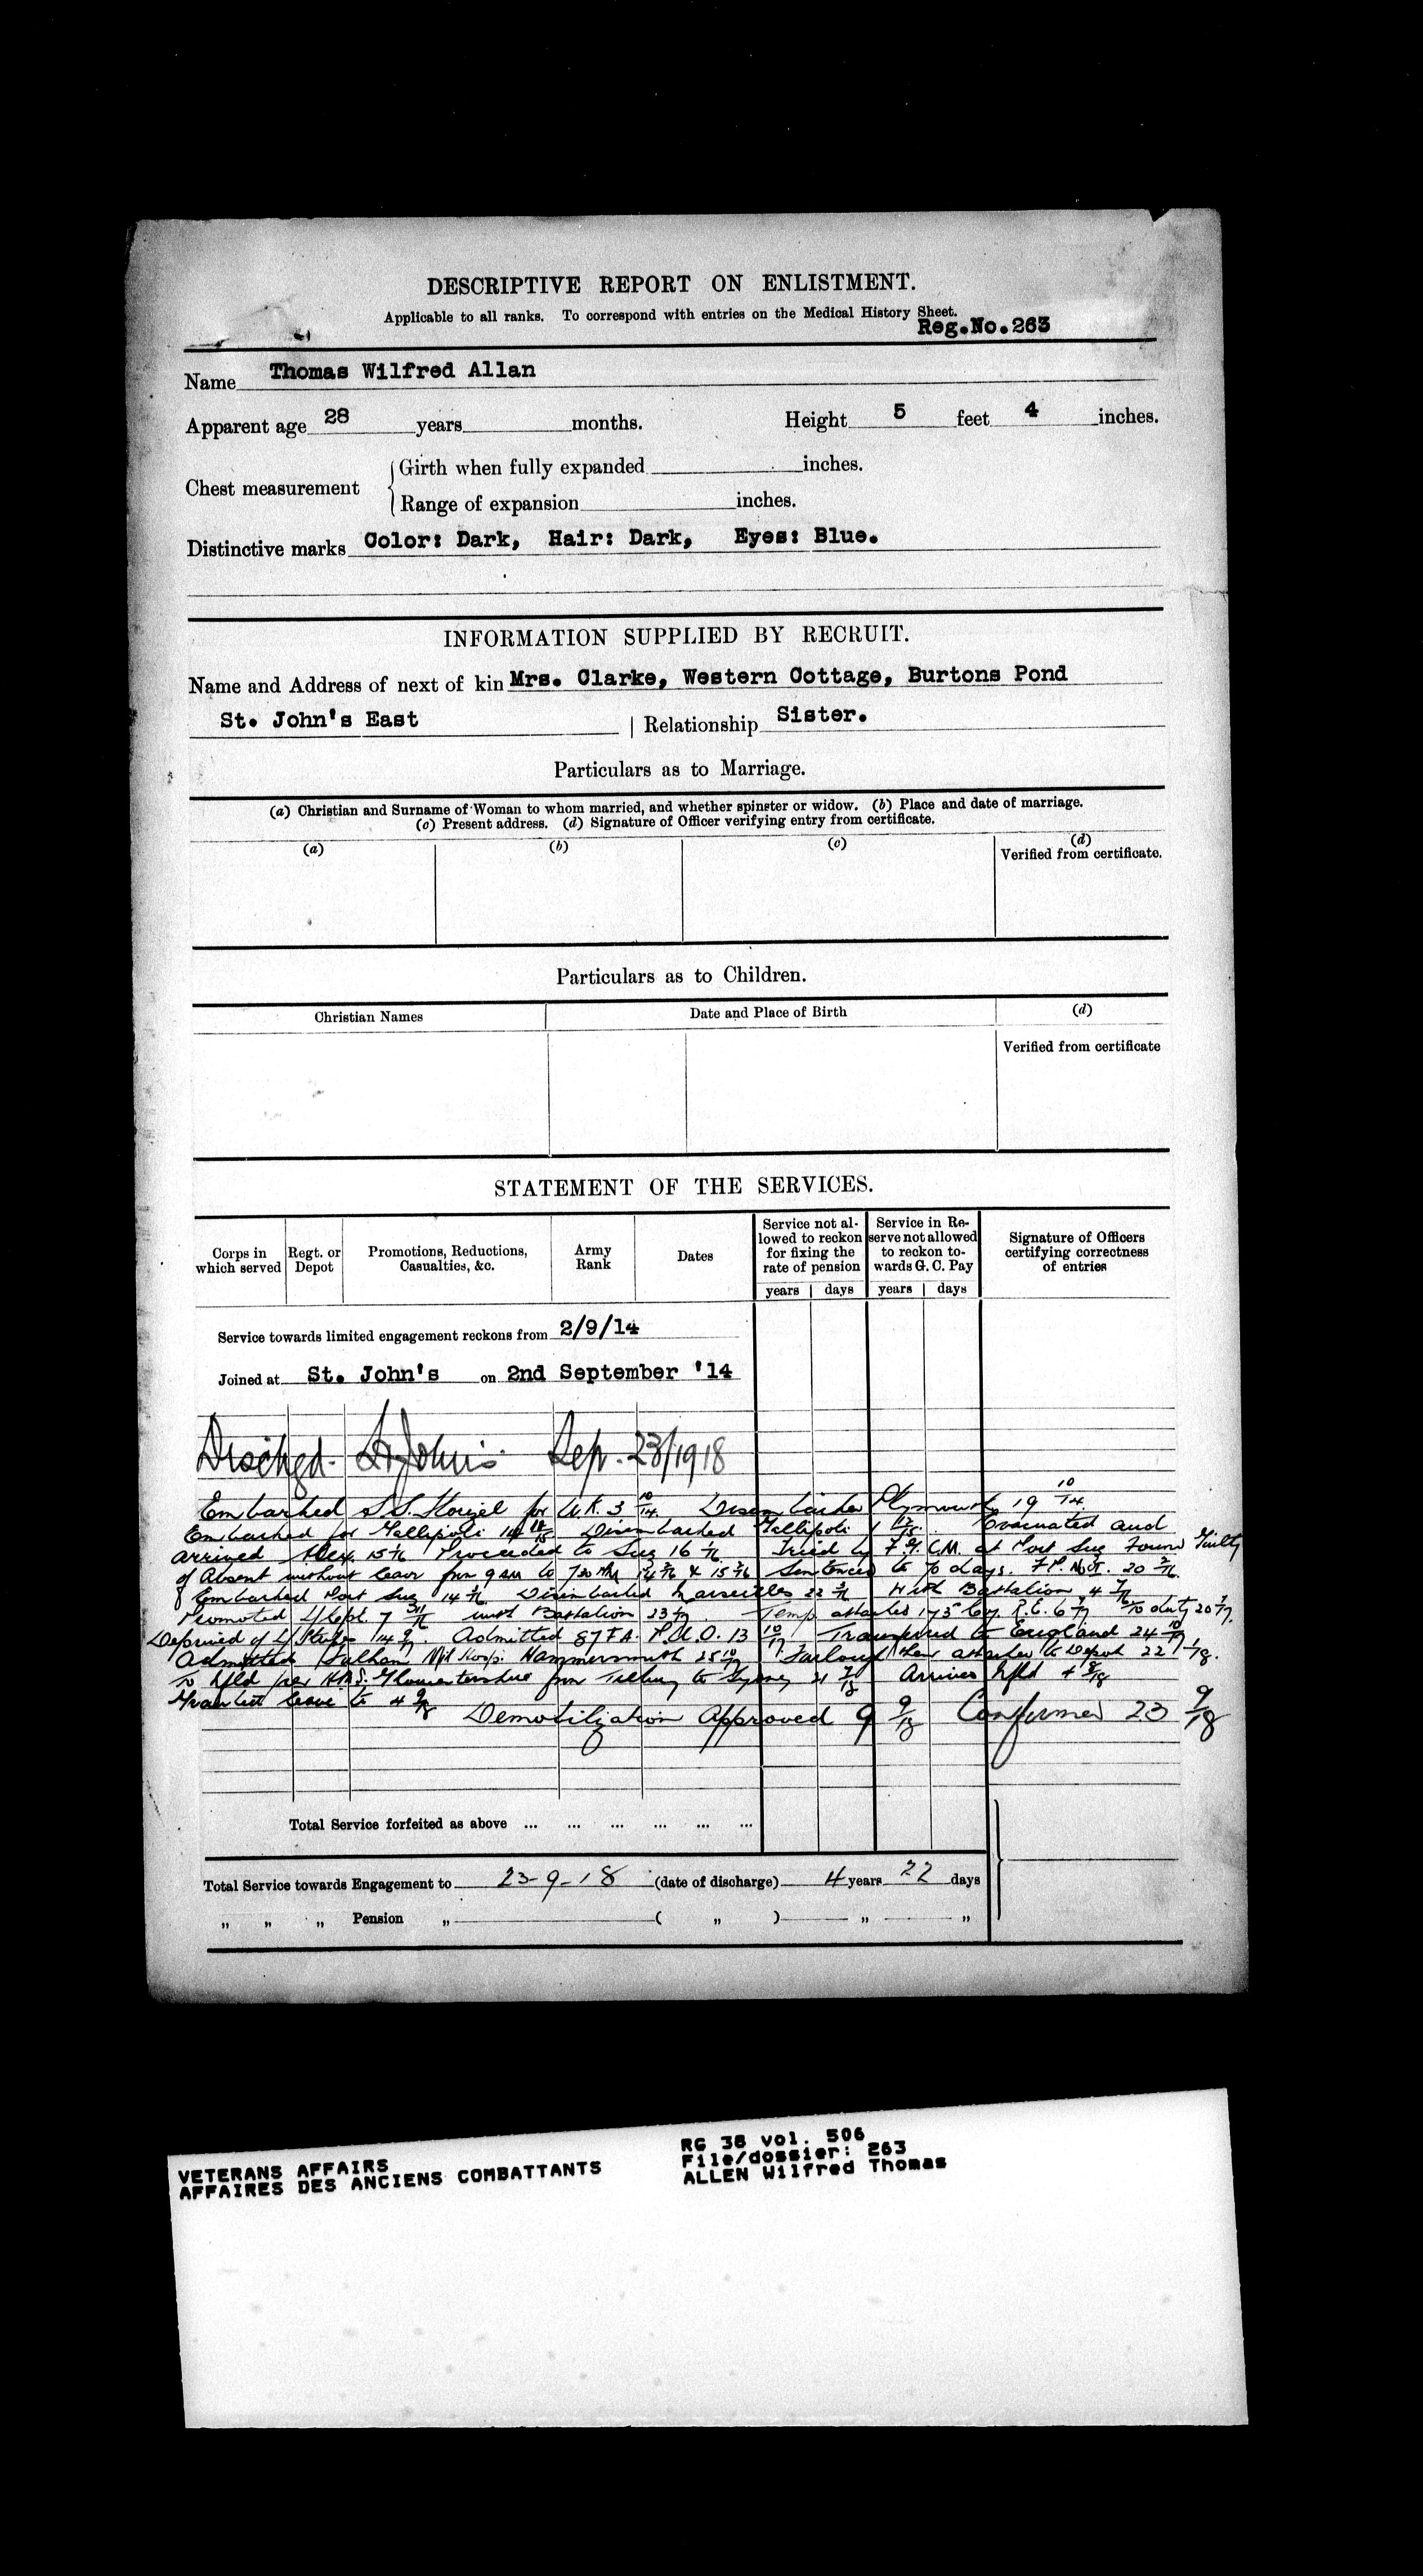 DESCRIPTIVE REPORT ON ENLISTMENT.
Applicable to all ranks. To correspond with entries on the Medical History Sheet.
Reg.No.263
Name Thomas Wilfred Allan
Apparent age 28 years months. Height 5 feet 4 inches.
Chest measurement
Girth when fully expanded inches.
Range of expansion inches.
Distinctive marks Color: Dark, Hair: Dark, Eyes: Blue.
INFORMATION SUPPLIED BY RECRUIT.
Name and Address of next of kin Mrs. Clarke, Western Cottage, Burtons Pond
St. John's East | Relationship Sister.
Particulars as to Marriage.
(a) Christian and Surname of Woman to whom married, and whether spinster or widow. (b) Place and date of marriage.
(c) Present address. (d) Signature of Officer verifying entry from certificate.
(a) (b) (c) (d)
Verified from certificate.
Particulars as to Children.
Christian Names Date and Place of Birth (d)
Verified from certificate
STATEMENT OF THE SERVICES.
Corps in which served Regt. or Depot Promotions, Reductions, Casualties, &c. Army Rank Dates Service not allowed to reckon for fixing the rate of pension Service in Reserve not allowed to reckon towards G. C. Pay Signature of Officers certifying correctness of entries
years days years days
Service towards limited engagement reckons from 2/9/14
Joined at St. John's on 2nd September '14
Dischgd. St Johns Sep. 23/1918
Embarked S.S. Florizel for U.K. 3 10/14 Disembarked Plymouth 19 10/14.
Embarked for Gallipoli Disembarked Gallipoli 1 12/15. Evacuated and
arrived Alex. 15 1/16 Proceeded to Suez 16 1/16 Tried by F.G.C.M. at Port Suez Found Guilty
of Absent without leave from 9 am to 15 2/16 Sentenced to days. F.P. No. 20 2/16.
Embarked Port Suez 14 3/16 Disembarked Marseilles 22 3/16 With Battalion 4
Promoted L/Cpl. 7 with Battalion 23 Temp attached 175 Coy. R.E. 6 To duty 20
Deprived of L/Stripe 14 9/17. Admitted 87 F.A. P.U.O. 13 10/17 Transferred to England 24 10/17
Admitted Fulham Mil Hosp. Hammersmith 25 10/17 Furlough then attached to Depot 22 1/18.
To Nfld per H.M.S. Gloucestershire from Tilbury to Sydney 21 7/18 Arrived Nfld 4 8/18
Granted leave to 4 9/18
Demobilization Approved 9 9/18 Confirmed 23 9/18
Total Service forfeited as above ... ... ... ... ... ...
Total Service towards Engagement to 23-9-18 (date of discharge) 4 years 22 days
" " " Pension " ( " ) " "
VETERANS AFFAIRS
AFFAIRES DES ANCIENS COMBATTANTS
RG 38 vol. 506
File/dossier: 263
ALLEN Wilfred Thomas